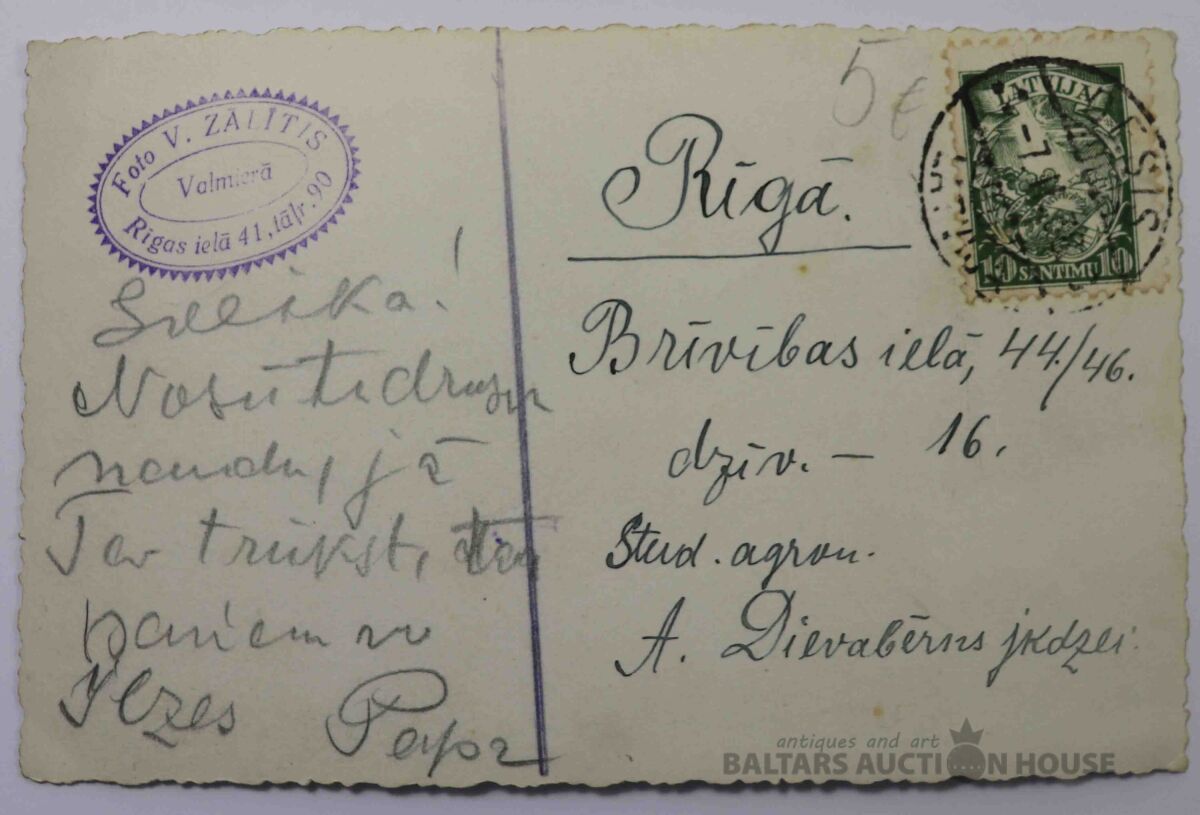 Foto V. ZĀLĪTIS
Valmierā
Rīgas ielā 41, tāļr. 90
Sveika!
Nosūtu drusku
naudu, ja
Tev trūkst, tad
paņem no
Ilzes Paps
5€
Rīgā.
Brīvības ielā, 44./46.
dzīv. — 16.
Stud. agron.
A. Dievabērns jkdzei.
LATVIJA
10 SANTIMU 10
antiques and art
BALTARS AUCTION HOUSE